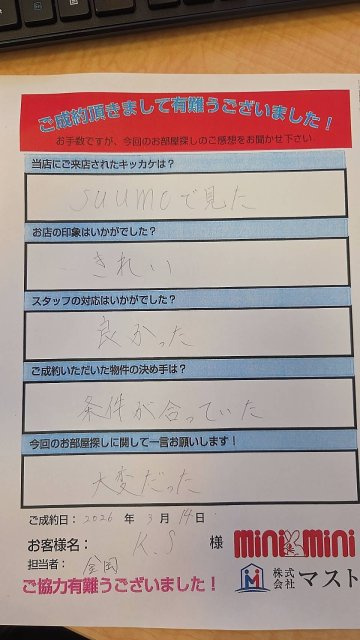 ご成約頂きまして有難うございました！
お手数ですが、今回のお部屋探しのご感想をお聞かせ下さい
当店にご来店されたキッカケは？
SUUMOで見た
お店の印象はいかがでした？
きれい
スタッフの対応はいかがでした？
良かった
ご成約いただいた物件の決め手は？
条件が合っていた
今回のお部屋探しに関して一言お願いします！
大変だった
ご成約日：2026 年 3月 14日
お客様名： K.S 様
担当者：
ご協力有難うございました！
mini mini
株式会社 マスト